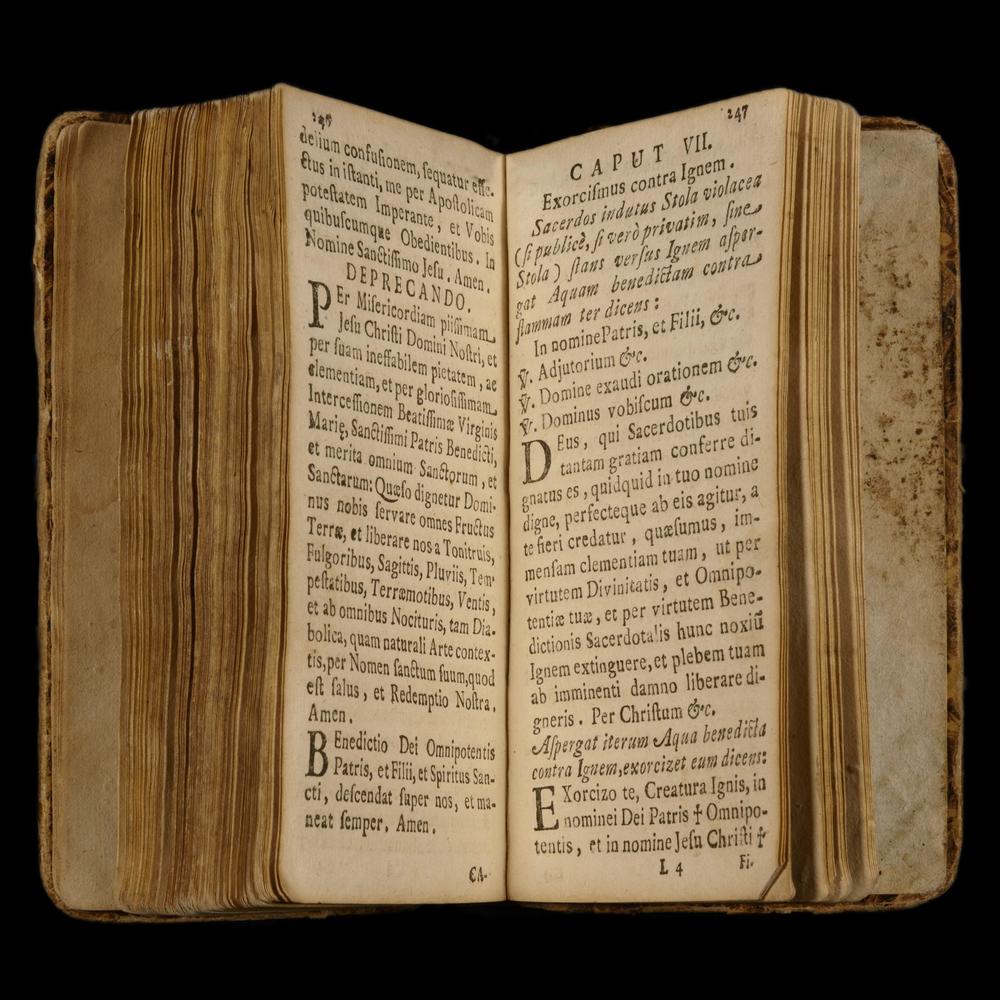 delium confusionem, sequatur effe-
ctus in istanti, me per Apostolicam
potestatem Imperante, et Vobis
quibuscumque Obedientibus. In
Nomine Sanctissimo Jesu. Amen.
DEPRECANDO.
PEr Misericordiam piissimam
Jesu Christi Domini Nostri, et
per suam ineffabilem pietatem, ac
clementiam, et per gloriosissimam
Intercessionem Beatissimæ Virginis
Marię, Sanctissimi Patris Benedicti,
et merita omnium Sanctorum, et
Sanctarum: Quæso dignetur Domi-
nus nobis servare omnes Fructus
Terræ, et liberare nos a Tonitruis,
Fulgoribus, Sagittis, Pluviis, Tem-
pestatibus, Terræmotibus, Ventis,
et ab omnibus Nocituris, tam Dia-
bolica, quam naturali Arte contex-
tis, per Nomen sanctum suum, quod
est salus, et Redemptio Nostra.
Amen.
BEnedictio Dei Omnipotentis
Patris, et Filii, et Spiritus San-
cti, descendat super nos, et ma-
neat semper. Amen.
CA-
247
CAPUT VII.
Exorcismus contra Ignem.
Sacerdos indutus Stola violacea
(si publicè, si verò privatim, sine
Stola) stans versus Ignem asper-
gat Aquam benedictam contra
flammam ter dicens:
In nomine Patris, et Filii, &c.
℣. Adjutorium &c.
℣. Domine exaudi orationem &c.
℣. Dominus vobiscum &c.
DEus, qui Sacerdotibus tuis
tantam gratiam conferre di-
gnatus es, quidquid in tuo nomine
digne, perfecteque ab eis agitur, a
te fieri credatur, quæsumus, im-
mensam clementiam tuam, ut per
virtutem Divinitatis, et Omnipo-
tentiæ tuæ, et per virtutem Bene-
dictionis Sacerdotalis hunc noxiũ
Ignem extinguere, et plebem tuam
ab imminenti damno liberare di-
gneris. Per Christum &c.
Aspergat iterum Aqua benedicta
contra Ignem, exorcizet eum dicens:
EXorcizo te, Creatura Ignis, in
nominei Dei Patris ✝ Omnipo-
tentis, et in nomine Jesu Christi ✝
L 4 Fi-